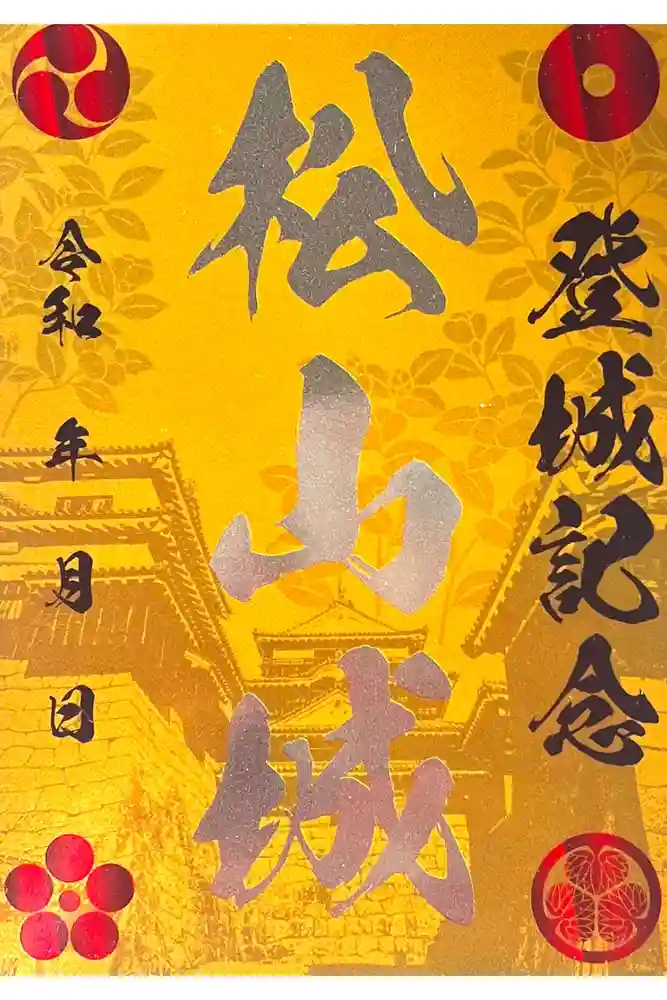 登城記念
松山城
令和 年 月 日